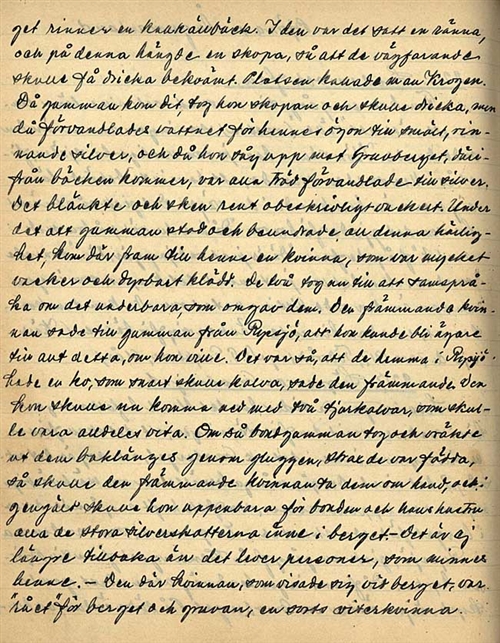 get rinner en knakänbäck. I den var det satt en ränna,
och på denna hängde en skopa, så att de vägfarande
skulle få dricka bekvämt. Platsen kallade man Krogen.
Då gumman kom dit, tog hon skopan och skulle dricka, men
då förvandlades vattnet för hennes ögon till smält, rin-
nande silver, och då hon såg upp mot Gruvberget, däri-
från bäcken kommer, var alla träd förvandlade till silver.
Det blänkte och sken rent obeskrivligt vackert. Under
det att gumman stod och beundrade all denna härlig-
het kom där fram till henne en kvinna, som var mycket
vacker och dyrbart klädd. De två tog nu till att samsprå-
ka om det underbara, som omgav dem. Den främmande kvin-
nan sade till gumman från Rypsjö, att hon kunde bli ägare
till allt detta, om hon ville. Det var så, att de hemma i Rypsjö
hade en ko, som snart skulle kalva, sade den främmande. Den
kon skulle nu komma ned med två tjurkalvar, som skul-
le vara alldeles vita. Om så bondgumman tog och vräkte
ut dem baklänges genom gluggen, strax de var födda,
så skulle den främmande kvinnan ta dem om hand, och i
gengält skulle hon uppenbara för bonden och hans hustru
alla de stora silverskatterna inne i berget. – Det är ej
längre tillbaka än det lever personer, som minnes
henne. – Den där kvinnan, som visade sig vid berget, var
"rået" för berget och gruvan, en sorts vitterkvinna.